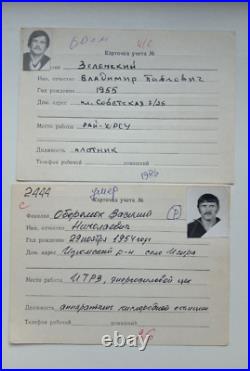 бвом
ч/с
Карточка учета №
Зеленский
Имя, отчество Владимир Павлович
Год рождения 1955
Дом. адрес ул. Советская
Место работы РАЙ-
Должность плотник
Телефон рабочий домашний
1986
2444
умер
Карточка учета №
с
Фамилия Василий
Имя, отчество Николаевич
Р
Год рождения 29 ноября 1954 года
Дом. адрес Изюмский р-н село
Место работы цех
Должность аппаратчик кислородной станции
Телефон рабочий домашний